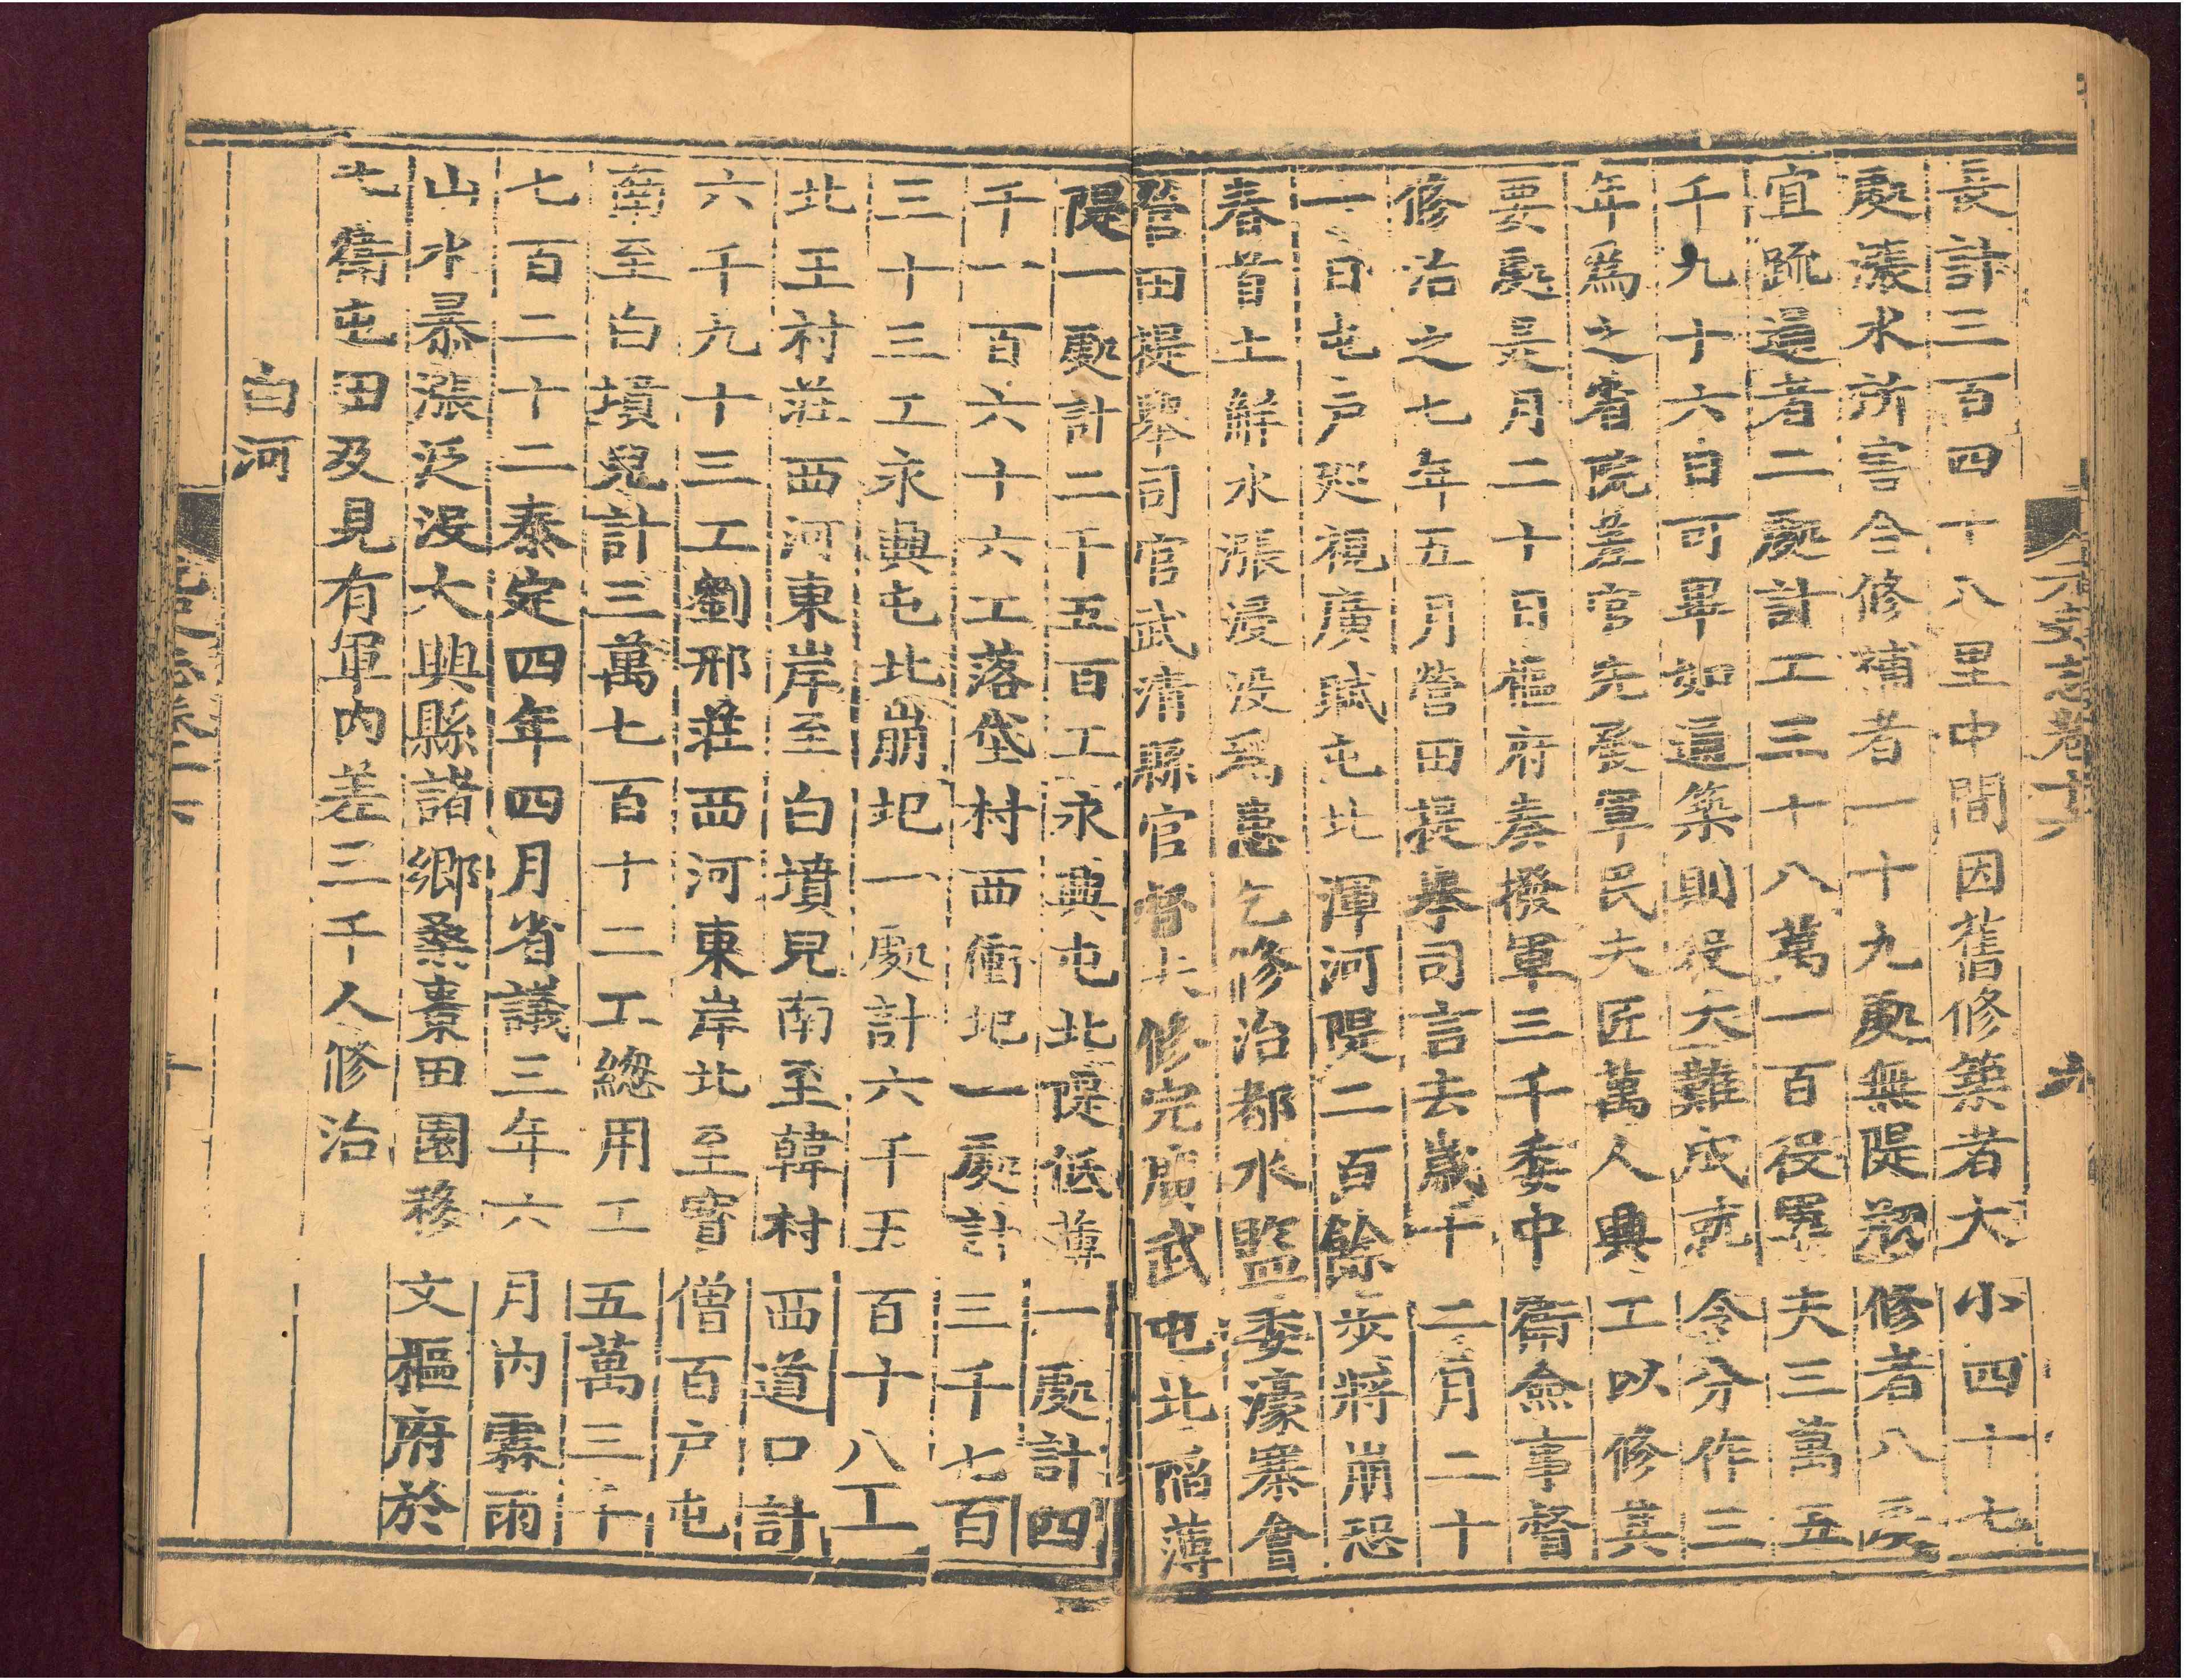 元史志卷十六
九
長計三百四十八里中間因舊修築者大小四十七
處漲水所害合修補者一十九處無隄剏修者八處
宜疏通者二處計工三十八萬一百役軍夫三萬五
千九十六自可畢如通築則役大難成就令分作三
年爲之省院差官先發軍民夫匠萬人興工以修其
要處是月二十日樞府奏撥軍三千委中衛僉事督
修治之七年五月營田提舉司言去歲十二月二十
一日屯戶巡視廣賦屯北渾河隄二百餘步將崩恐
春首土解水漲浸没爲患乞修治都水監委濠寨會
營田提舉司官武清縣官督夫修完廣武屯北陷薄
隄一處計二千五百工永興屯北隄低薄一處計四
千一百六十六工落垡村西衝圯一處計三千七百
三十三工永興屯北崩圯一處計六千五百十八工
北王村莊西河東岸至白墳兒南至韓村西道口計
六千九十三工劉邢莊西河東岸北至寳僧百戶屯
南至白墳兒計三萬七百十二工總用工五萬三千
七百二十二泰定四年四月省議三年六月内霖雨
山水暴漲泛没大興縣諸鄉桑棗田園移文樞府於
七衛屯田及見有軍内差三千人修治
白河
十